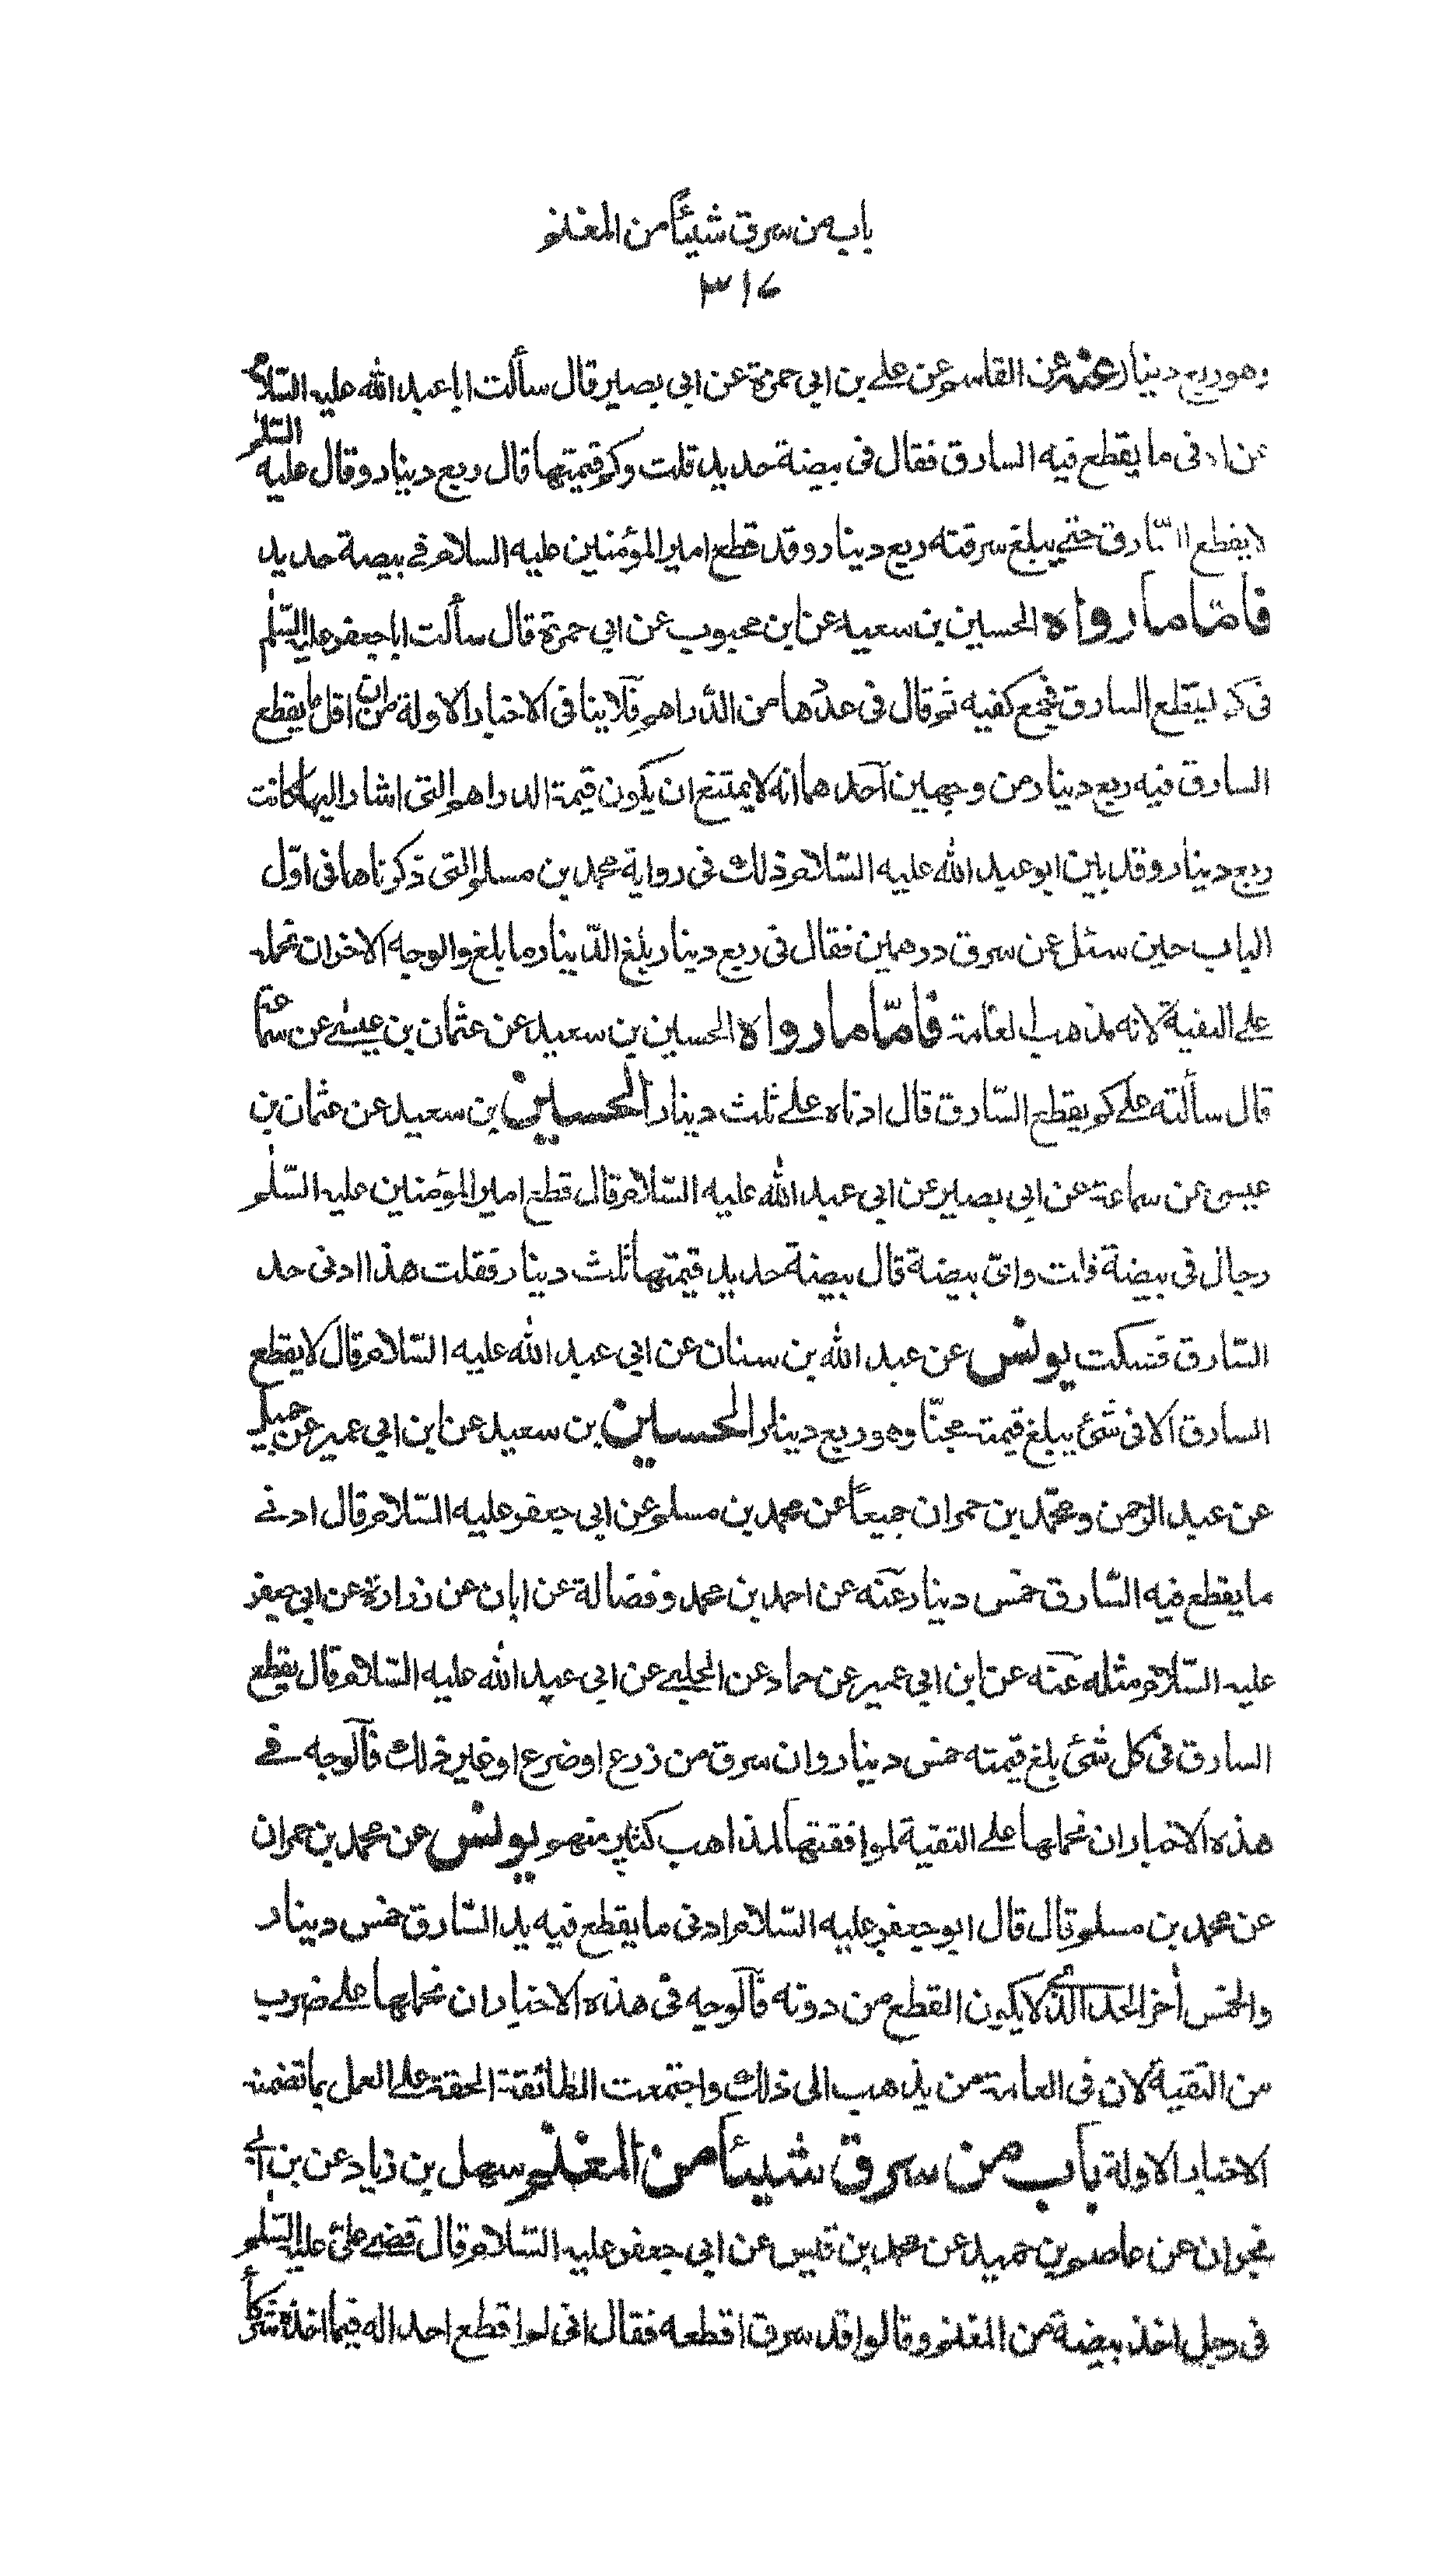 باب من سرق شيئاً من المغنم
٣١٧
وهو ربع دينار عنه عن القاسم عن علي بن ابي حمزة عن ابي بصير قال سألت ابا عبد الله عليه السلام
عن ادنى ما يقطع فيه السارق فقال في بيضة حديد قلت وكم قيمتها قال ربع دينار وقال عليه السلم
لا يقطع السّارق حتى يبلغ سرقته ربع دينار وقد قطع امير المؤمنين عليه السلام في بيضة حديد
فامّا ما رواه الحسين بن سعيد عن ابن محبوب عن ابي حمزة قال سألت ابا جعفر عليه السّلم
في كم يقطع السارق فجمع كفيه ثم قال في عددها من الدّراهم فلا ينافي الاخبار الاولة من ان اقل ما يقطع
السارق فيه ربع دينار من وجهين احدهما انه لا يمتنع ان يكون قيمة الدراهم التي اشار اليها كانت
ربع دينار وقد بين ابو عبد الله عليه السّلام ذلك في رواية محمد بن مسلم التي ذكرناها في اوّل
الباب حين سئل عن سرق درهمين فقال في ربع دينار بلغ الدّينار ما بلغ والوجه الاخر ان نحمله
على التقية لانه مذهب لعامة فامّا ما رواه الحسين بن سعيد عن عثمان بن عيسى عن سماعة
قال سألته على كم يقطع السّارق قال ادناه على ثلث دينار الحسين بن سعيد عن عثمان بن
عيسى عن سماعة عن ابي بصير عن ابي عبد الله عليه السّلام قال قطع امير المؤمنين عليه السّلم
رجلا في بيضة قلت وايّ بيضة قال بيضة حديد قيمتها ثلث دينار فقلت هذا ادنى حد
السّارق فسكت يونس عن عبد الله بن سنان عن ابي عبد الله عليه السّلام قال لا يقطع
السارق الا في شئ يبلغ قيمته مجنّا وهو ربع دينار الحسين بن سعيد عن ابن ابي عمير عن جميل
عن عبد الرحمن ومحمّد بن حمران جميعاً عن محمد بن مسلم عن ابي جعفر عليه السّلام قال ادنى
ما يقطع فيه السّارق خمس دينار عنه عن احمد بن محمد وفضالة عن ابان عن زرارة عن ابي جعفر
عليه السّلام مثله عنه عن ابن ابي عمير عن حماد عن الحلبي عن ابي عبد الله عليه السّلام قال يقطع
السارق في كل شئ بلغ قيمته خمس دينار وان سرق من زرع او ضرع او غير ذلك فالوجه في
هذه الاخبار ان نحملها على التقية لموافقتها لمذاهب كثير منهم يونس عن محمد بن حمران
عن محمد بن مسلم قال قال ابو جعفر عليه السّلام ادنى ما يقطع فيه يد السّارق خمس دينار
والخمس اخر الحد الّذي لا يكون القطع من دونه فالوجه في هذه الاخبار ان نحملها على ضرب
من التقية لان في العامة من يذهب الى ذلك واجتمعت الطائفة المحقة على العمل بما تضمنه
الاخبار الاولة باب من سرق شيئاً من المغنم سهل بن زياد عن بن ابي
نجران عن عاصم بن حميد عن محمد بن قيس عن ابي جعفر عليه السّلام قال قضى علي عليه السّلم
في رجل اخذ بيضة من المغنم وقالوا قد سرق اقطعه فقال اني لم اقطع احدا له فيما اخذ شرك